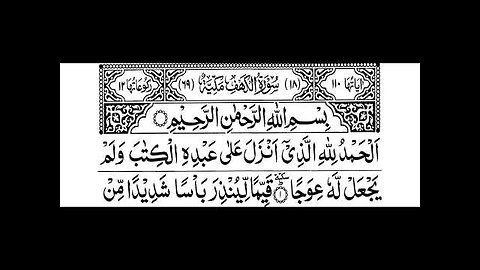 اٰیاتها ١١٠ (١٨) سُوْرَةُ الْكَهْفِ مَكِّيَّةٌ (٦٩) رکوعاتها ١٢
بِسْمِ اللّٰهِ الرَّحْمٰنِ الرَّحِيْمِ
اَلْحَمْدُ لِلّٰهِ الَّذِيْٓ اَنْزَلَ عَلٰى عَبْدِهِ الْكِتٰبَ وَلَمْ
يَجْعَلْ لَّهٗ عِوَجًا ١ قَيِّمًا لِّيُنْذِرَ بَاْسًا شَدِيْدًا مِّنْ